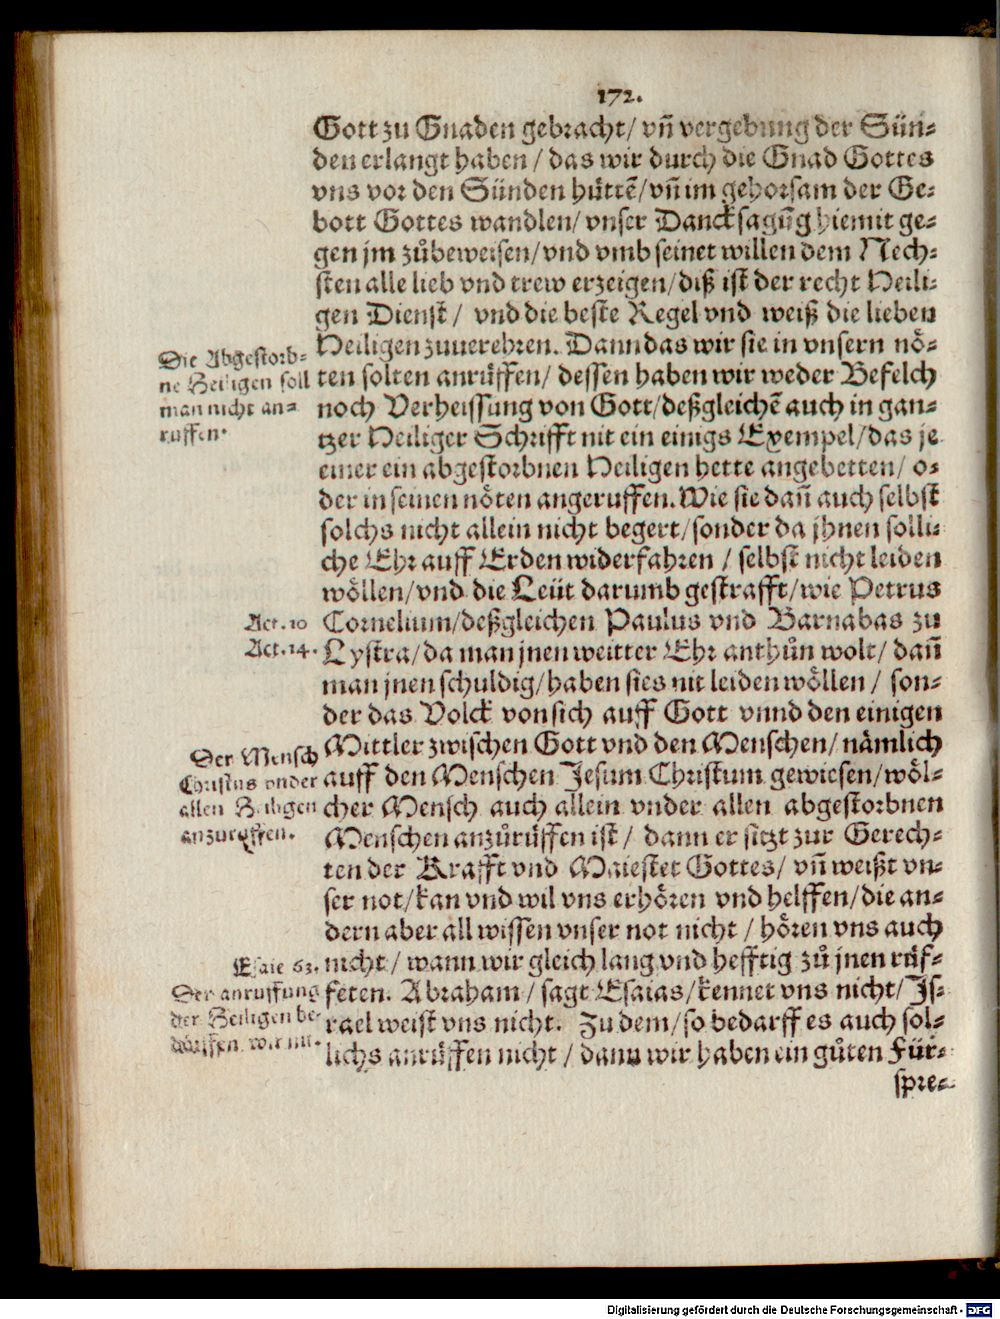 172.
Gott zu Gnaden gebracht/ vñ vergebung der Sün-
den erlangt haben/ das wir durch die Gnad Gottes
vns vor den Sünden hüttẽ/ vñ im gehorsam der Ge-
bott Gottes wandlen/ vnser Dancksagũg hiemit ge-
gen jm zůbeweisen/ vnd vmb seinet willen dem Nech-
sten alle lieb vnd trew erzeigen/ diß ist der recht Heili-
gen Dienst/ vnd die beste Regel vnd weiß die lieben
Heiligen zuuerehren. Dann das wir sie in vnsern nö-
ten solten anrüffen/ dessen haben wir weder Befelch
noch Verheissung von Gott/ deßgleichẽ auch in gan-
tzer Heiliger Schrifft nit ein einigs Exempel/ das je
einer ein abgestorbnen Heiligen hette angebetten/ o-
der in seinen nöten angeruffen. Wie sie dañ auch selbst
solchs nicht allein nicht begert/ sonder da jhnen solli-
che Ehr auff Erden widerfahren/ selbst nicht leiden
wöllen/ vnd die Leüt darumb gestrafft/ wie Petrus
Cornelium/ deßgleichen Paulus vnd Barnabas zu
Lystra/ da man jnen weitter Ehr anthůn wolt/ dañ
man jnen schuldig/ haben sies nit leiden wöllen/ son-
der das Volck von sich auff Gott vnnd den einigen
Mittler zwischen Gott vnd den Menschen/ nämlich
auff den Menschen Jesum Christum gewiesen/ wöl-
cher Mensch auch allein vnder allen abgestorbnen
Menschen anzůrüffen ist/ dann er sitzt zur Gerech-
ten der Krafft vnd Maiestet Gottes/ vñ weißt vn-
ser not/ kan vnd wil vns erhören vnd helffen/ die an-
dern aber all wissen vnser not nicht/ hören vns auch
nicht/ wann wir gleich lang vnd hefftig zů jnen rüf-
feten. Abraham/ sagt Esaias/ kennet vns nicht/ Js-
rael weist vns nicht. Zu dem/ so bedarff es auch sol-
lichs anrüffen nicht/ dann wir haben ein gůten Für-
spre-
Die Abgestorb-
ne Heiligen soll
man nicht an-
ruffen.
Act. 10
Act. 14.
Der Mensch
Christus vnder
allen Heiligen
anzuruffen.
Esaie 63.
Der anruffung
der Heiligen be-
dörffen wir ni-
Digitalisierung gefördert durch die Deutsche Forschungsgemeinschaft - DFG